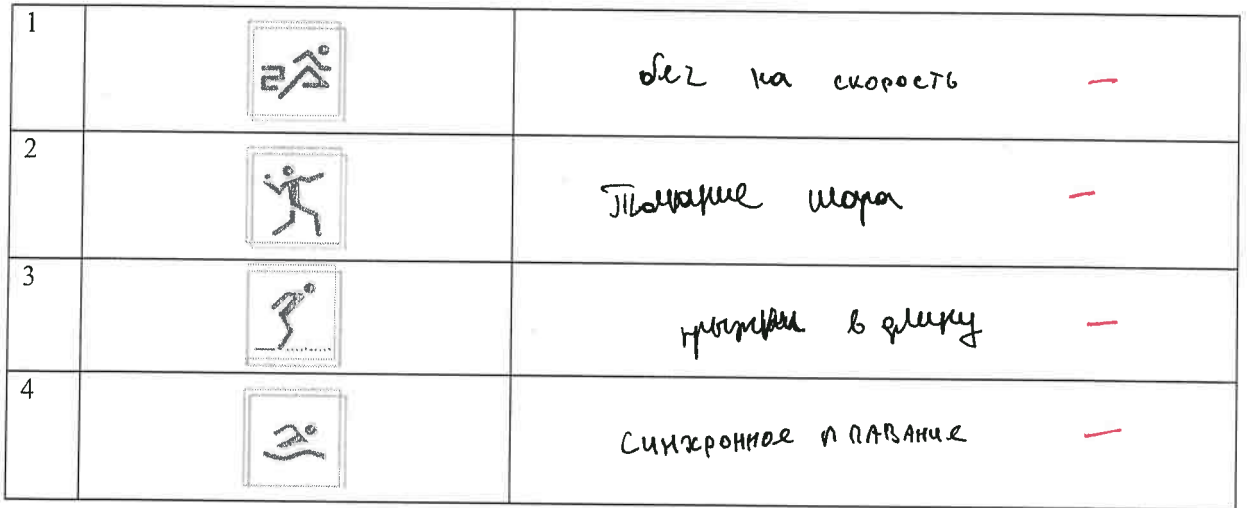 1
бег на скорость —
2
Толкание шара —
3
прыжки в длину —
4
Синхронное плавание —